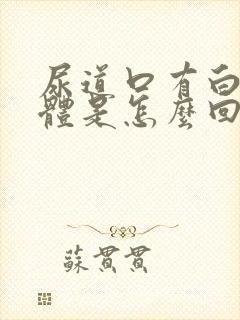 尿道口有白
體是怎麼回
蘇貫貫